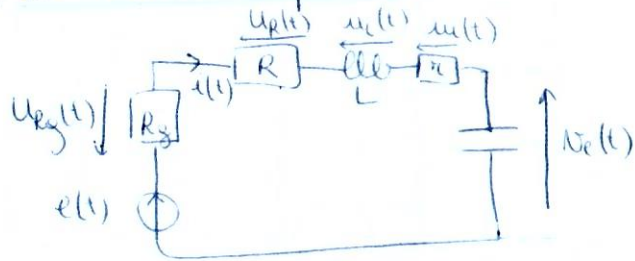 u_R(t) u_L(t) u(t)
i(t) R L r
u_Rg(t) Rg
e(t) v_c(t)